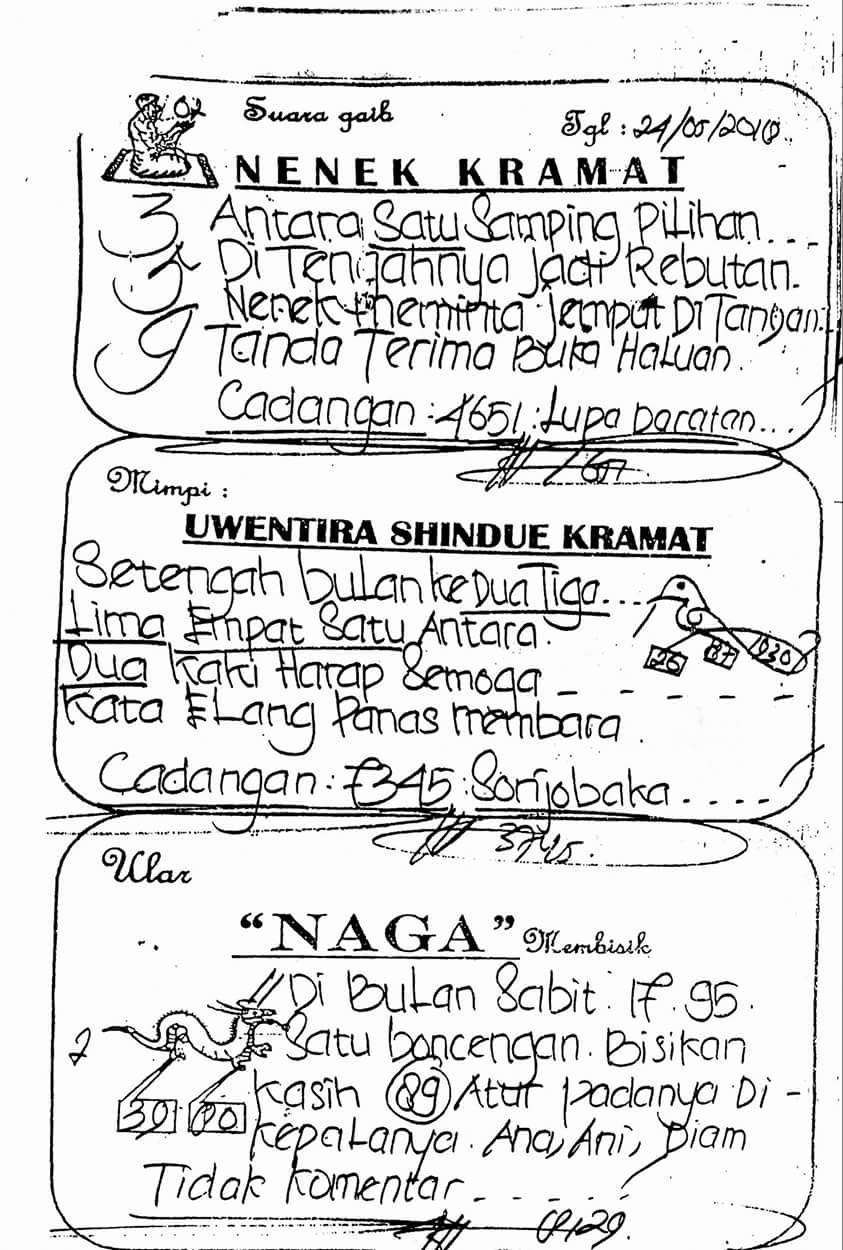 Suara gaib
Tgl : 24/05/2010
NENEK KRAMAT
3 Antara Satu Samping Pilihan...
Di Tengahnya Jadi Rebutan.
Nenek Meminta Jemput Di Tangan.
9 Tanda Terima Buka Haluan.
Cadangan : 4651 : Lupa Daratan...
Mimpi :
UWENTIRA SHINDUE KRAMAT
Setengah bulan ke Dua Tiga....
Lima Empat Satu Antara.
Dua Kaki Harap Semoga _ _ _ _ _
26 87
Kata Elang Panas membara.
Cadangan : 7345 : Sorijobaka....
3745.
Ular
"NAGA" Membisik
Di Bulan Sabit : 17. 95.
2 Satu boncengan. Bisikan
Kasih 89 Atur padanya Di -
39 00
Kepalanya. Ana, Ani, Diam
Tidak Komentar _ _ _ _ _